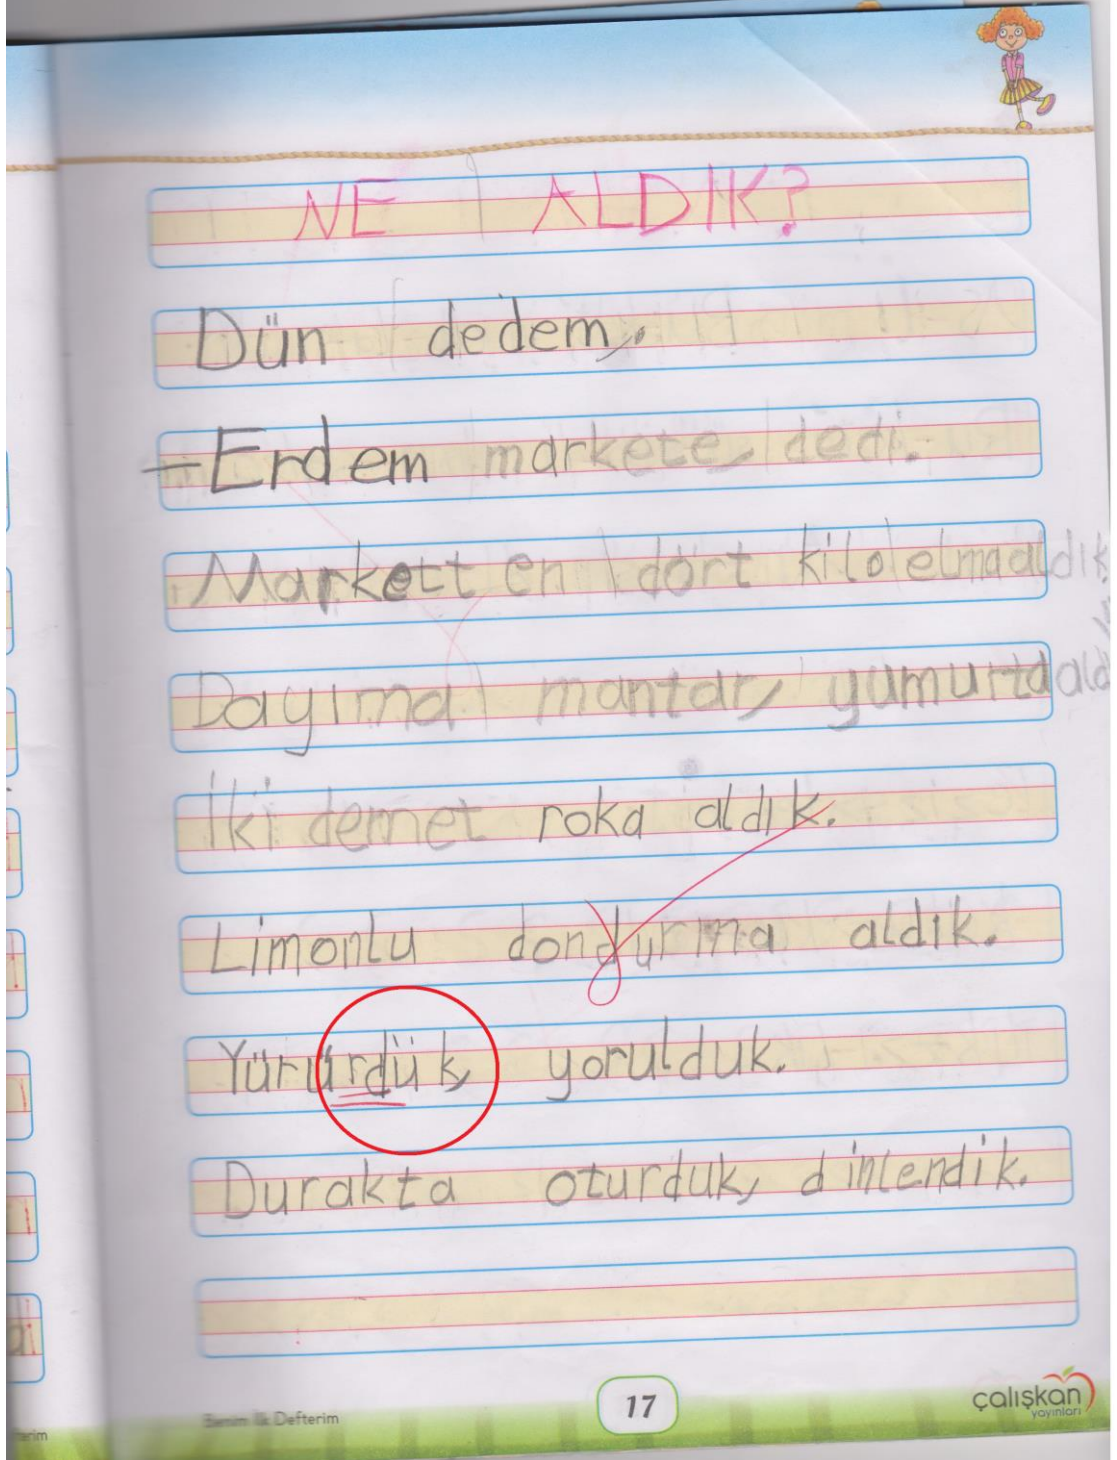 NE ALDIK?
Dün dedem,.
-Erdem markete, dedi.
Markett en dört kilo elma aldık
Dayıma mantar, yumurta ald
İki demet roka aldık.
Limonlu dondurma aldık.
Yürürdük, yorulduk.
Durakta oturduk, dinlendik.
Benim İlk Defterim
17
çalışkan
yayınları
terim